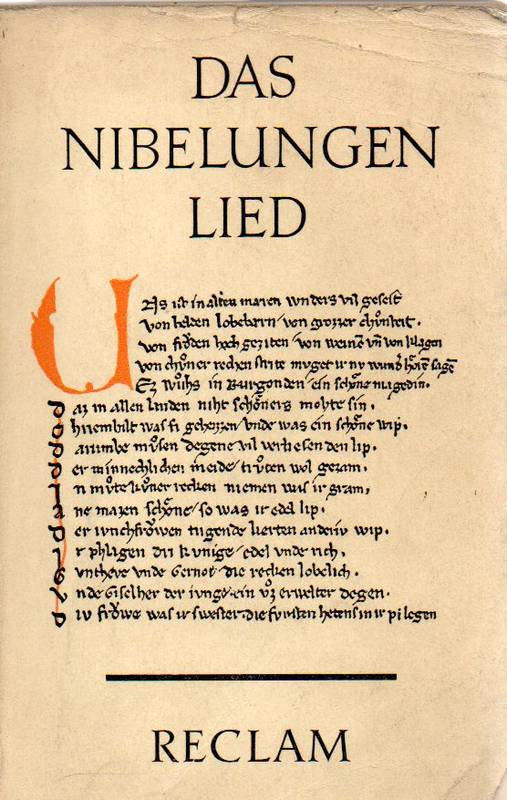 DAS
NIBELUNGEN
LIED
Uns ist in alten maren wnders vil geseit
von helden lobebærn von grozzer chůnheit.
von frŏden hoch geziten von weinen vñ von klagen
von chůner rechen strite muget ir nv wund hŏren sagē
Ez wůhs in Burgonden ein schŏne magedin.
daz in allen landen niht schŏners mohte sin.
chriemhilt was si geheizzen vnde was ein schŏne wip.
darvmbe můsen degene vil verliesen den lip.
der minnechlichen meide trůten wol gezam.
in můte kůner recken niemen was ir gram,
ane mazen schŏne so was ir edel lip.
der ivnchfrŏwen tugende zierten anderiv wip.
ir phlagen dri kunige edel vnde rich,
Gunthere vnde Gernot die recken lobelich.
vnde Giselher der ivnge ein vz erwelter degen.
div frŏwe was ir swester die fvrsten hetens in ir pflegen
RECLAM